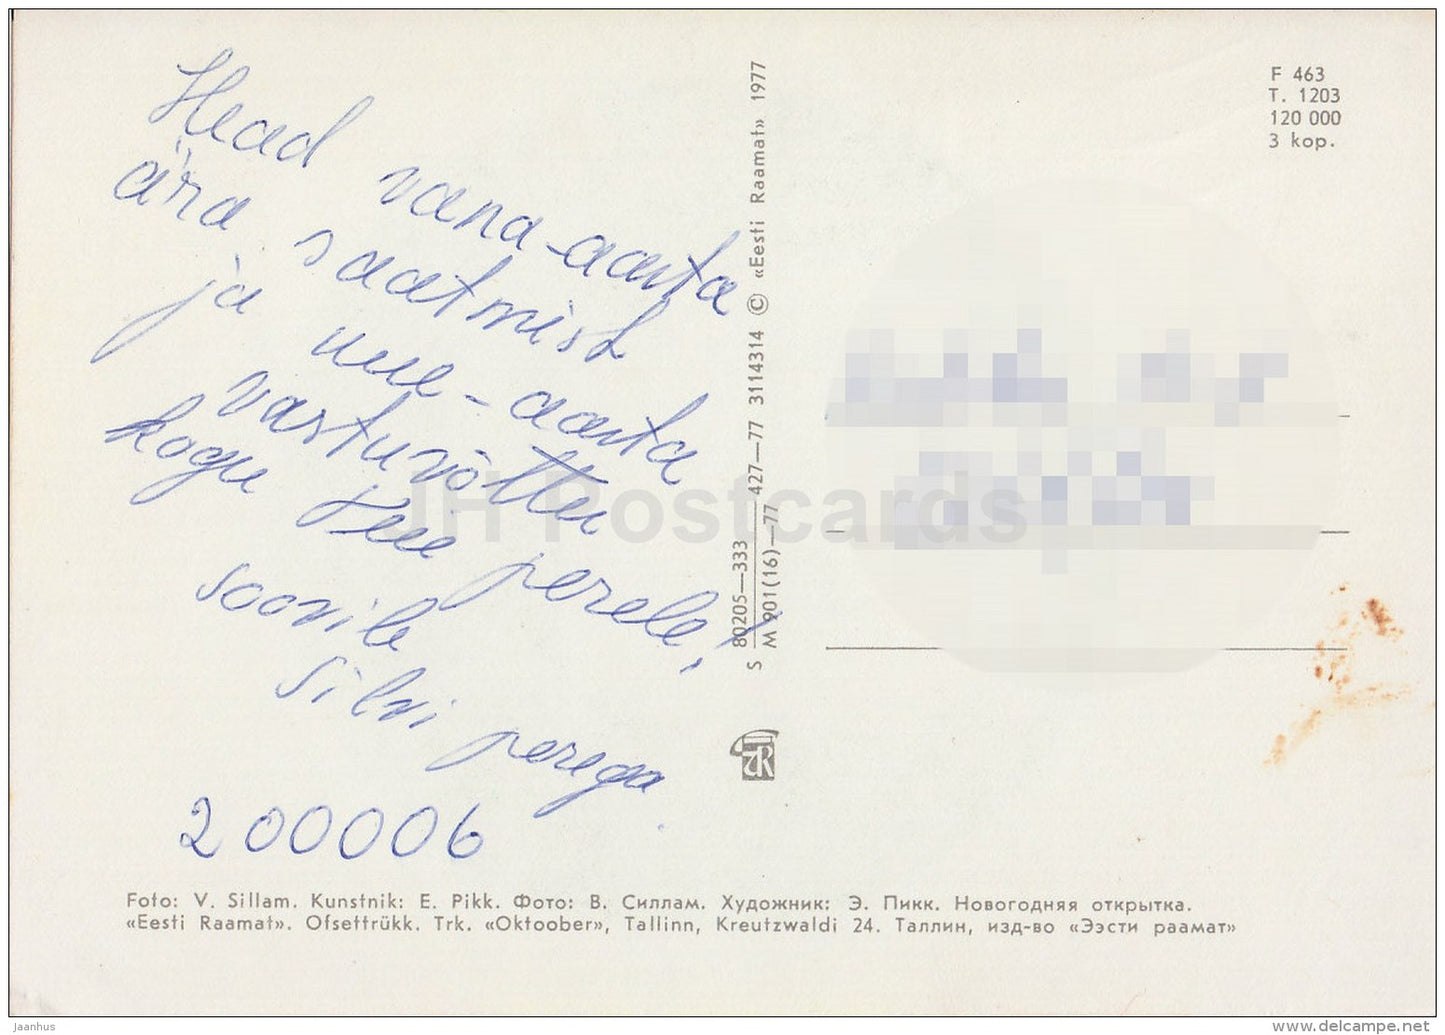 Head vana-aasta
ära saatmist
ja uue-aasta
vastuvõttu
kogu Teie perele!
soovib
Silvi perega
200006
S 80205—333 427—77 3114314 © «Eesti Raamat» 1977
M 901(16)—77
F 463
T. 1203
120 000
3 kop.
Foto: V. Sillam. Kunstnik: E. Pikk. Фото: В. Силлам. Художник: Э. Пикк. Новогодняя открытка.
«Eesti Raamat». Ofsettrükk. Trk. «Oktoober», Tallinn, Kreutzwaldi 24. Таллин, изд-во «Ээсти раамат»
JH Postcards
jaanhus
www.delcampe.net